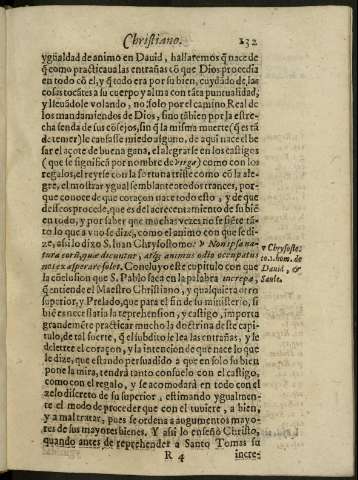 Christiano. 132
ygüaldad de animo en Dauid, hallaremos q̃ nace de
q̃ como practicaua las entrañas cõ que Dios procedia
en todo cõ el, y q̃ todo era por su bien, cuydãdo de, las
cosas tocãtes a su cuerpo y alma con tãta puntualidad,
y lleuãdole volando, no solo por el camino Real de
los mandamientos de Dios, sino tãbien por la estre-
cha senda de sus cõsejos, sin q̃ la misma muerte (q̃ es tã
de temer) le causasse miedo alguno, de aqui nace el be
sar el açote de buena gana, el alegrarse en los castigos
(que se significã por nombre de Virga) como con los
regalos, el reyrse con la fortuna triste como cõ la ale-
gre, el mostrar ygual semblante en todos trances, por-
que conoce de que coraçon nace todo esto, y de que
desseos procede, que es del acrecentamiento de su biẽ
en todo, y por saber que muchas vezes no se siẽte tã-
to lo que a vno se dize, como el animo con que se di-
ze, assi lo dixo S. Iuan Chrysostomo: v Non ipsa na-
tura eorũ, quæ dicuntur, atq; animus odio occupatus
nos exasperare solet. Concluyo este capitulo con que
la cõclusion que S. Pablo saca en la palabra increpa,
q̃ entiende el Maestro Christiano, y qualquiera otro
superior, y Prelado, que para el fin de su ministerio, si
biẽ es necessaria la reprehension, y castigo, importa
grandemẽte practicar mucho la doctrina deste capi-
tulo, de tal suerte, q̃ el subdito le lea las entrañas, y le
deletree el coraçon, y la intencion de que nace lo que
le dize, que estando persuadido a que en solo su bien
pone la mira, tendrà tanto consuelo con el castigo,
como con el regalo, y se acomodarà en todo con el
zelo discreto de su superior, estimando ygualmen-
te el modo de proceder que con el tuuiere, a bien,
y a mal tratar, pues se ordena a augumentos mayo-
res de sus mayores bienes. Y assi lo enseñò Christo,
quando antes de reprehender a Santo Tomas su
R 4 incre-
v Chrysost.
to. 1. hom. de
Dauid, &
Saule.